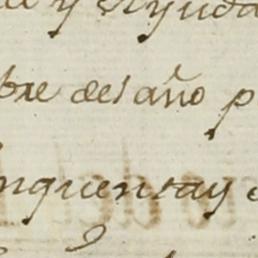 y Ayuda
bre del año p
nquentay